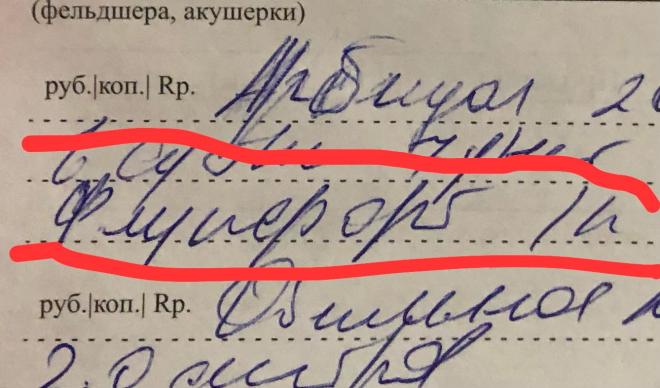 (фельдшера, акушерки)
руб.|коп.| Rp. Арбидол
в сутки
Флуифорт 1п
руб.|коп.| Rp. Обильное
2.0 литра